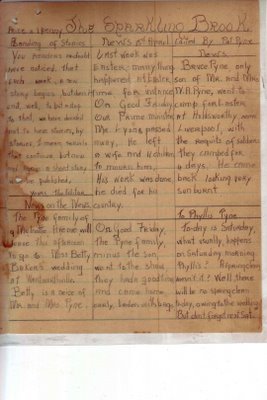 Price 1 penny The Sparkling Brook
Blending of Stories
You readers no doubt
have noticed, that
each week, a new
story begins but don't
end, well, to put a stop
to that, we have decided
not to have stories, by
stories I mean serials
that continue, but now
and again a short story
will be published.
yours the Editor.
News on the News
The Pyne family of
9 Melrose Avenue will
leave this afternoon
to go to Miss Betty
Baker's wedding
at Wentworthville.
Betty is a niece of
Mr. and Mrs. Pyne.
News 15th April
Last week was
Easter, many things
happened at Easter
time for instance
On Good Friday
Our Prime minister
Mr. Lyons, passed
away. He left
a wife and 11 children
to mourn him,
His work was done
he died for his
country.
On Good Friday,
The Pyne family,
minus the son,
went to the show
They had a good time
and came home
early, laden with bags.
Edited By Pat Pyne
News
Bruce Pyne only
son of Mr. and Mrs
W.A. Pyne, went to
camp for Easter
at Holdsworthy, near
Liverpool, with
the
They camped for
4 days. He came
back looking very
sunburnt
To Phyllis Pyne
To-day is Saturday,
what usually happens
on Saturday morning
Phyllis? A spring clean
wasn't it? Well there
will be no spring clean
today, owing to the wedding
But don't forget next Sat.